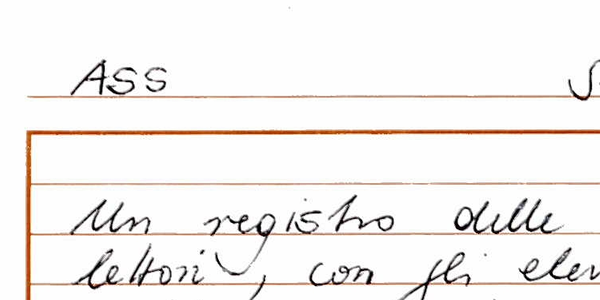 ASS
Un registro delle
lettori, con gli